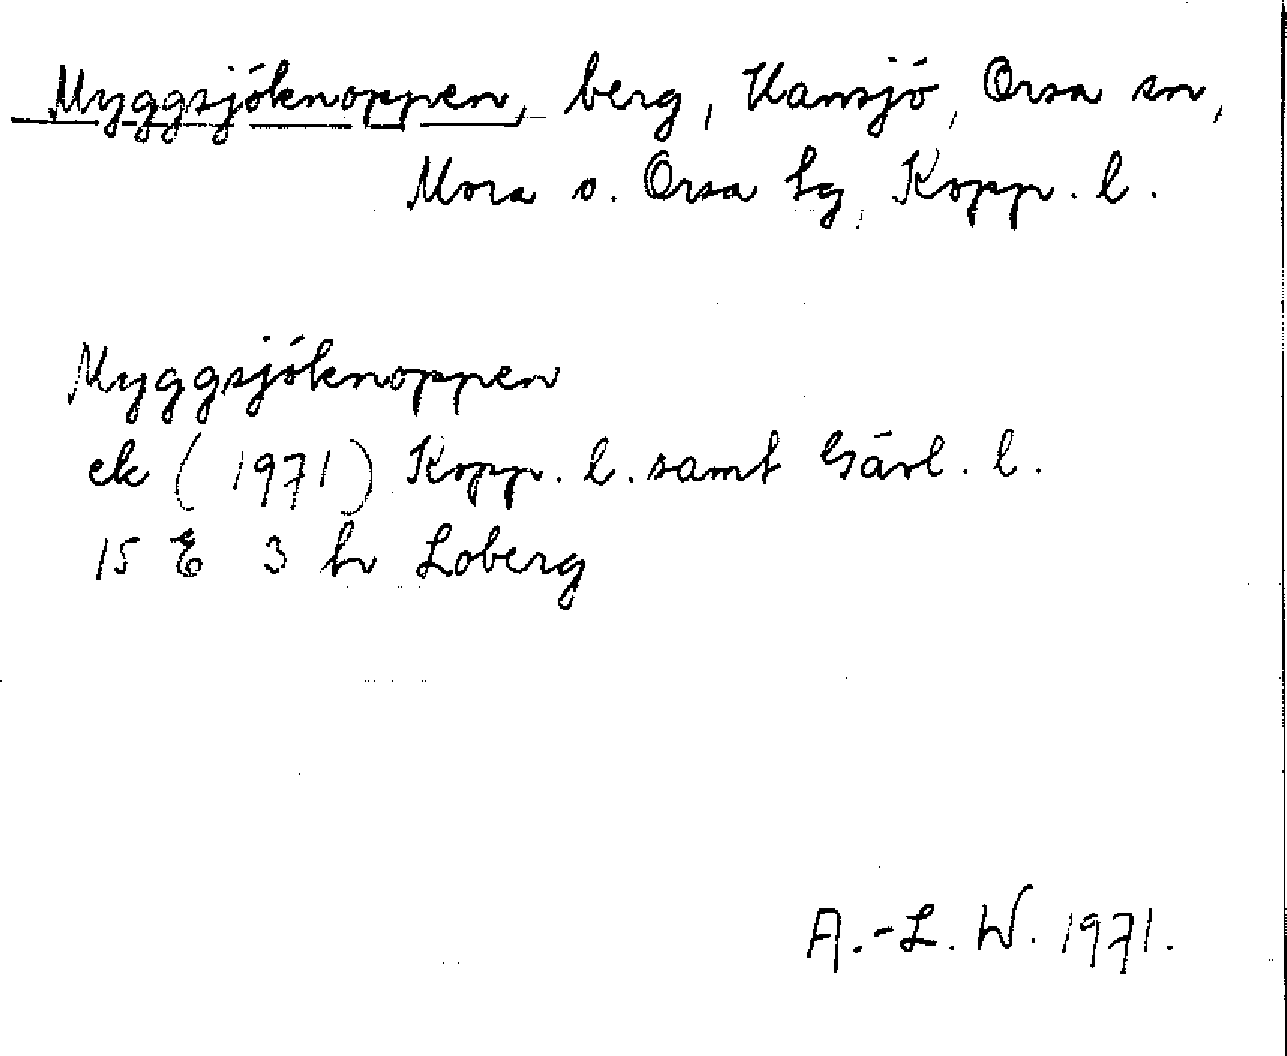 Myggsjöknoppen, berg, Hamsjö, Orsa sn,
Mora o. Orsa tg, Kopp. l.
Myggsjöknoppen
ek (1971) Kopp. l. samt Gävl. l.
15 E 3 h Loberg
A.-L. W. 1971.